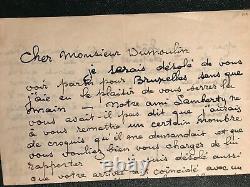 Cher Monsieur Dumoulin
je serais désolé de vous
voir partir pour Bruxelles sans que
j'aie eu le plaisir de vous serrer la
main — Notre ami Lamberty ne
vous avait-il pas dit que j'aurais
à vous remettre un certain nombre
de croquis qu'il me demandait et que
vous vouliez bien vous charger de lui
rapporter désolé aussi
que votre arrivée ait coïncidé avec un